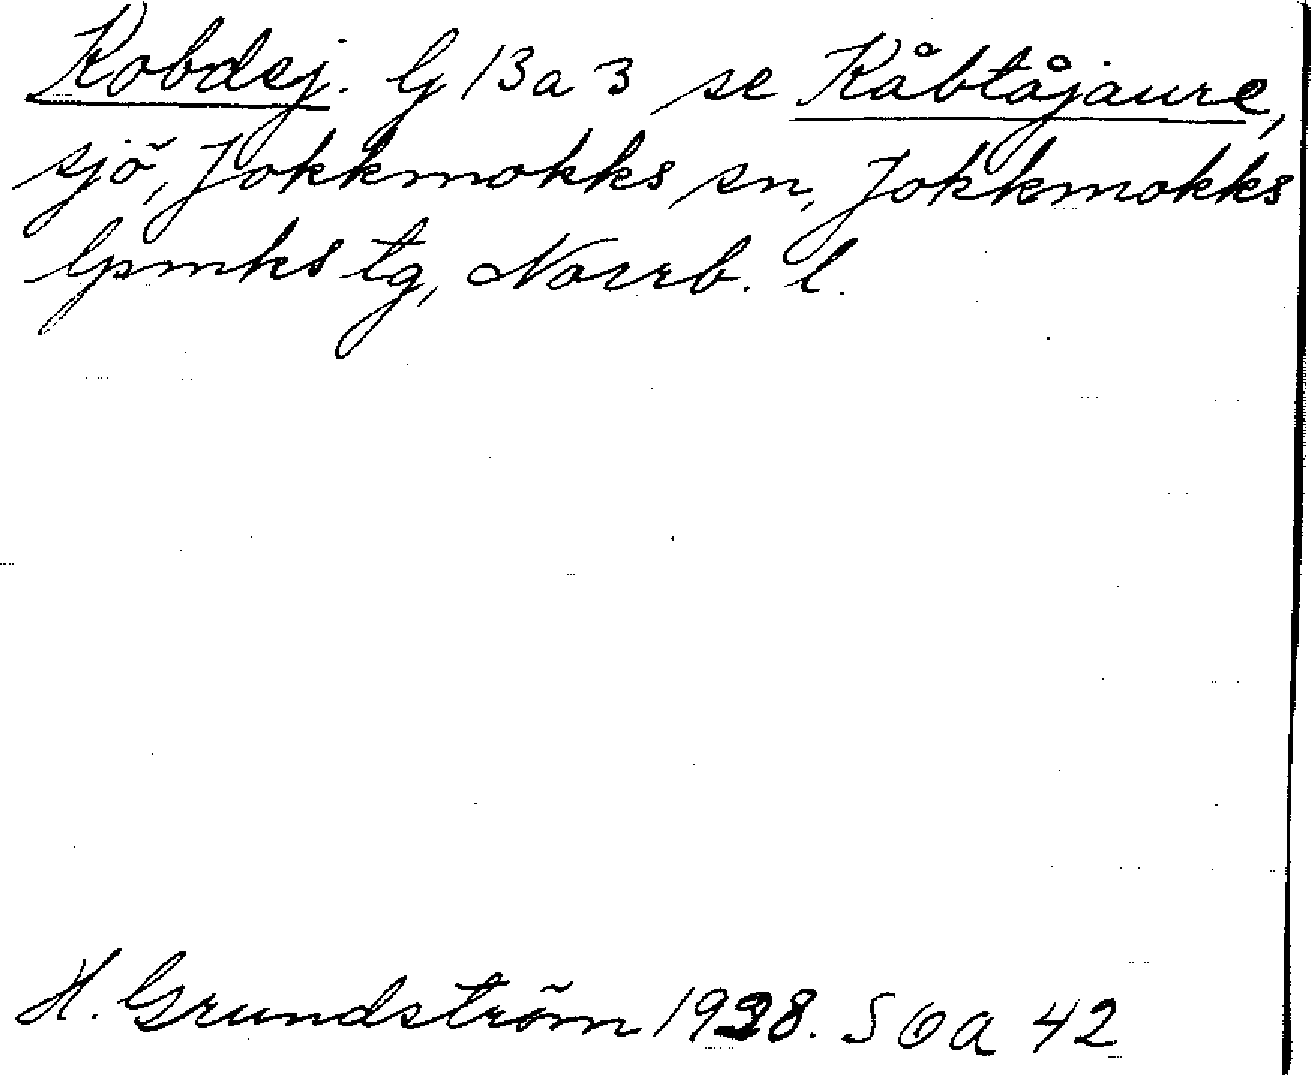 Kobdej. G 13 a 3 se Kåbtåjaure,
sjö, Jokkmokks sn, Jokkmokks
lpmks tg, Norrb. l.
H. Grundström 1928. SOA 42